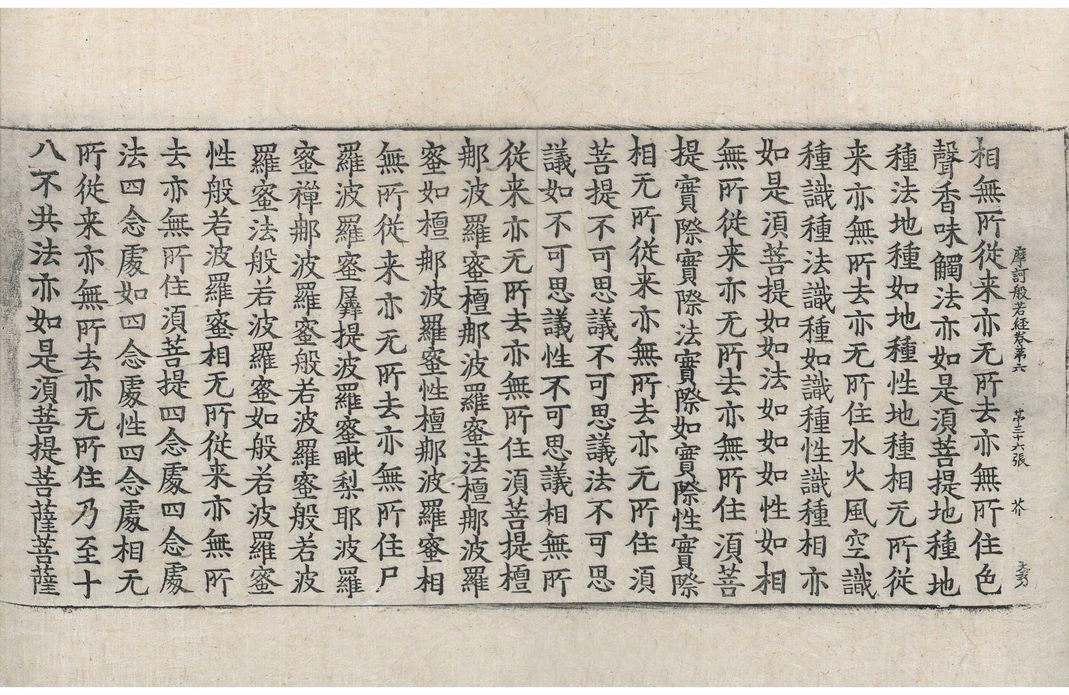 摩訶般若経卷第六 第三十六張 芥
相無所従来亦无所去亦無所住色
聲香味觸法亦如是湏菩提地種地
種法地種如地種性地種相无所従
来亦無所去亦无所住水火風空識
種識種法識種如識種性識種相亦
如是湏菩提如如法如如如性如相
無所従来亦无所去亦無所住湏菩
提實際實際法實際如實際性實際
相无所従来亦無所去亦无所住湏
菩提不可思議不可思議法不可思
議如不可思議性不可思議相無所
従来亦无所去亦無所住湏菩提檀
那波羅蜜檀那波羅蜜法檀那波羅
蜜如檀那波羅蜜性檀那波羅蜜相
無所従来亦无所去亦無所住尸
羅波羅蜜羼提波羅蜜毗梨耶波羅
蜜禪那波羅蜜般若波羅蜜般若波
羅蜜法般若波羅蜜如般若波羅蜜
性般若波羅蜜相无所従来亦無所
去亦無所住湏菩提四念處四念處
法四念處如四念處性四念處相无
所従来亦無所去亦无所住乃至十
八不共法亦如是湏菩提菩薩菩薩